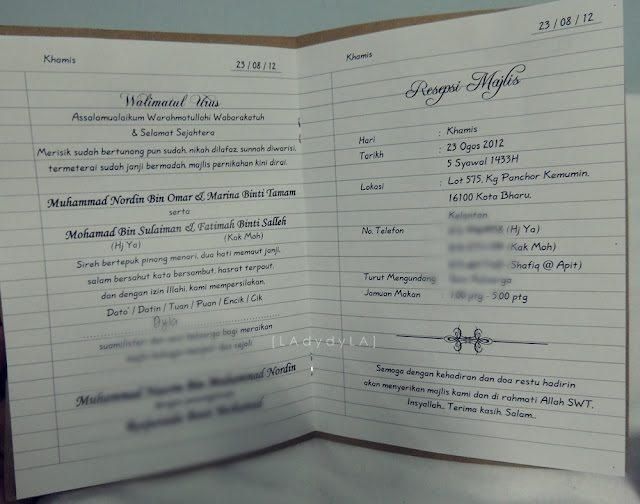 Khamis
23 / 08 / 12
Walimatul Urus
Assalamualaikum Warahmatullahi Wabarakatuh
& Selamat Sejahtera
Merisik sudah bertunang pun sudah, nikah dilafaz sunnah diwarisi,
termeterai sudah janji bermadah, majlis pernikahan kini dirai.
Muhammad Nordin Bin Omar & Marina Binti Tamam
serta
Mohamad Bin Sulaiman & Fatimah Binti Salleh
(Hj Ya) (Kak Moh)
Sireh bertepuk pinang menari, dua hati memaut janji,
salam bersahut kata bersambut, hasrat terpaut,
dan dengan izin Illahi, kami mempersilakan,
Dato' / Datin / Tuan / Puan / Encik / Cik
suami/isteri dan seisi keluarga bagi meraikan
Muhammad Nordin Bin Muhammad Nordin
Khamis
23 / 08 / 12
Resepsi Majlis
Hari : Khamis
Tarikh : 23 Ogos 2012
5 Syawal 1433H
Lokasi : Lot 575, Kg Panchor Kemumin,
16100 Kota Bharu,
Kelantan
No. Telefon : (Hj Ya)
(Kak Moh)
(Shafiq @ Apit)
Turut Mengundang :
Jamuan Makan : 1:00 ptg - 5:00 ptg
[LAdydyLA]
Semoga dengan kehadiran dan doa restu hadirin
akan menyerikan majlis kami dan di rahmati Allah SWT,
Insyallah.. Terima kasih. Salam..